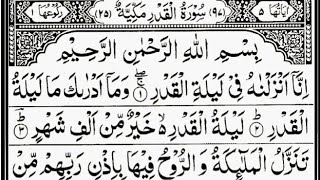 اٰیَاتُهَا ۵ (۹۷) سُوْرَةُ الْقَدْرِ مَكِّیَّةٌ (۲۵) رُكُوْعُهَا ۱
بِسْمِ اللّٰهِ الرَّحْمٰنِ الرَّحِیْمِ
اِنَّاۤ اَنْزَلْنٰهُ فِیْ لَیْلَةِ الْقَدْرِ ۚۖ ﴿۱﴾ وَمَاۤ اَدْرٰىكَ مَا لَیْلَةُ
الْقَدْرِ ؕ ﴿۲﴾ لَیْلَةُ الْقَدْرِ ۙ۬ خَیْرٌ مِّنْ اَلْفِ شَهْرٍ ؕؔ ﴿۳﴾
تَنَزَّلُ الْمَلٰٓىِٕكَةُ وَ الرُّوْحُ فِیْهَا بِاِذْنِ رَبِّهِمْ ۚ مِّنْ